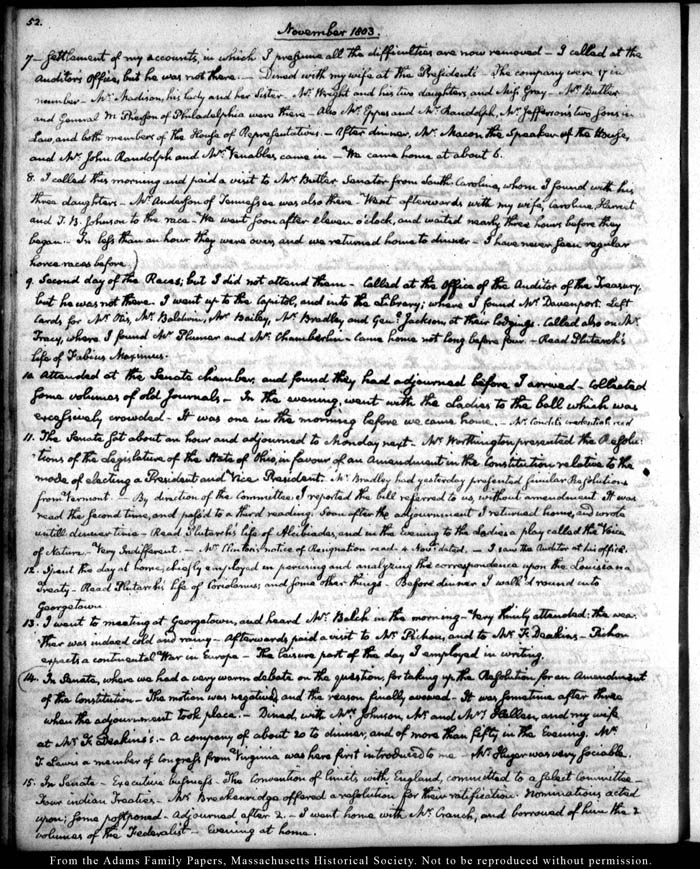 52.
November 1803.
7– Settlement of my accounts, in which I presume all the difficulties are now removed – I called at the
Auditor's office, but he was not there. — Dined with my wife at the President's – The company were 17 in
number – Mr. Madison, his lady and her Sister – Mr. Wright and his two daughters, and Miss Gray – Mr. Butler
and General McPherson of Philadelphia were there – Also Mr. Eppes and Mr. Randolph, Mr. Jefferson's two Sons in
Law, and both members of the House of Representatives. – After dinner, Mr. Macon, the Speaker of the House,
and Mr. John Randolph and Mr. Venable, came in – We came home at about 6.
8. I called this morning and paid a visit to Mr. Butler Senator from South Carolina, whom I found with his
three daughters – Mr. Anderson of Tennessee was also there – Went afterwards with my wife, Caroline, Harriet
and T. B. Johnson to the race – We went soon after eleven o'clock, and waited nearly three hours before they
began. – In less than an hour they were over, and we returned home to dinner – I have never seen regular
horse races before.
9. Second day of the Races; but I did not attend them – Called at the Office of the Auditor of the Treasury,
but he was not there. I went up to the Capitol, and into the Library; where I found Mr. Davenport. Left
Cards for Mr. Otis, Mr. Baldwin, Mr. Bailey, Mr. Bradley and Genl. Jackson, at their lodgings. Called also on Mr.
Tracy, where I found Mr. Plumer and Mr. Chamberlin – Came home not long before four. – Read Plutarch's
life of Fabius Maximus.
10. Attended at the Senate chamber, and found they had adjourned before I arrived – Collected
some volumes of old Journals – In the evening, went with the Ladies to the ball which was
excessively crowded – It was one in the morning before we came home. – Mr. Condit's credentials read
11. The Senate sat about an hour and adjourned to Monday next. Mr. Worthington presented the Resolu-
tions of the Legislature of the State of Ohio, in favour of an Amendment in the Constitution relative to the
mode of electing a President and Vice President. Mr. Bradley had yesterday presented similar Resolutions
from Vermont. – By direction of the Committee I reported the bill referred to us, without amendment. It was
read the second time, and pass'd to a third reading. Soon after the adjournment I returned home, and wrote
untill dinner time – Read Plutarch's life of Alcibiades, and in the Evening to the Ladies a play called the Voice
of Nature. Very Indifferent. – Mr. Clinton's notice of Resignation read. 4 Novr. dated. – I saw the Auditor at his office.
12. Spent the day at home, chiefly employed in perusing and analyzing the correspondence upon the Louisiana
Treaty – Read Plutarch's life of Coriolanus; and some other things. Before dinner I walk'd round into
Georgetown
13. I went to meeting at Georgetown, and heard Mr. Balch in the morning – Very thinly attended; the wea-
ther was indeed cold and rainy – Afterwards paid a visit to Mr. Pichon, and to Mr. F. Deakins – Pichon
expects a continental War in Europe – The leisure part of the day I employed in writing.
14. In Senate, where we had a very warm debate on the question, for taking up the Resolution for an Amendment
of the Constitution – The motion was negatived, and the reason finally avowed – It was sometime after three
when the adjournment took place. – Dined, with Mrs. Johnson, Mr. and Mrs. Hellen, and my wife
at Mr. F. Deakins's. – A company of about 20 to dinner, and of more than fifty in the Evening. Mr.
T. Lewis a member of Congress from Virginia was here first introduced to me – Mr. Huger was very sociable.
15. In Senate – Executive business – The Convention of limits with England, committed to a select Committee
Four indian Treaties – Mr. Breckenridge offered a resolution for their ratification. Nominations acted
upon; some postponed. Adjourned after 2. – I went home with Mr. Cranch, and borrowed of him the 2
volumes of the Federalist – Evening at home.
From the Adams Family Papers, Massachusetts Historical Society. Not to be reproduced without permission.